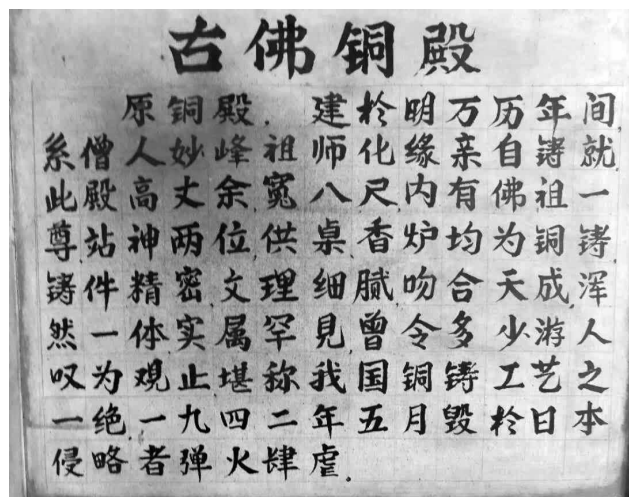 古佛铜殿
原铜殿，建於明万历年间，
系僧人妙峰祖师化缘亲自铸就，
此殿高丈余宽八尺，内有佛祖一
尊站神两位，供桌香炉均为铜铸，
铸件精密文理细腻，吻合天成，浑
然一体实属罕見，曾令多少游人
叹为覌止堪称我国铜铸工艺之
一绝，一九四二年五月毁於日本
侵略者弹火肆虐。